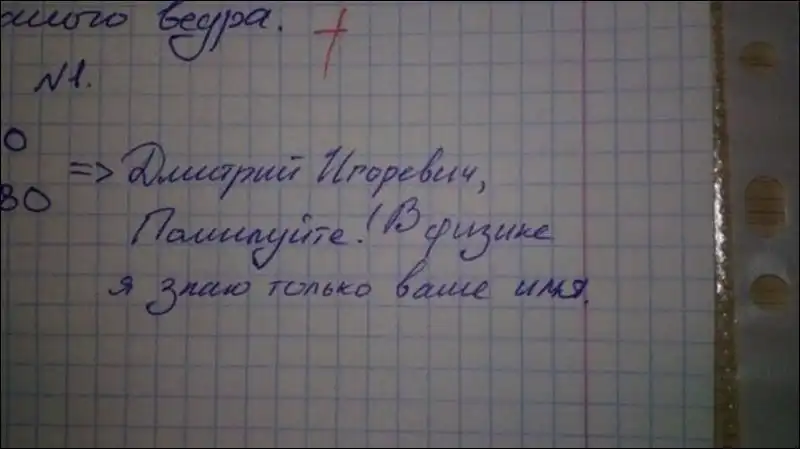 ведра.
N1.
0
30 => Дмитрий Игоревич,
Помилуйте! В физике
я знаю только ваше имя.